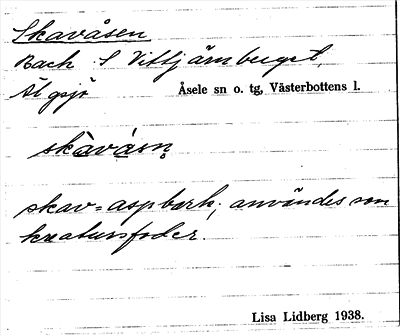 Skavåsen
Back S Vittjärnberget,
Älgsjö Åsele sn o. tg, Västerbottens l.
skàvá̀sn̥
skav = aspbark, användes som
kreatursfoder.
Lisa Lidberg 1938.